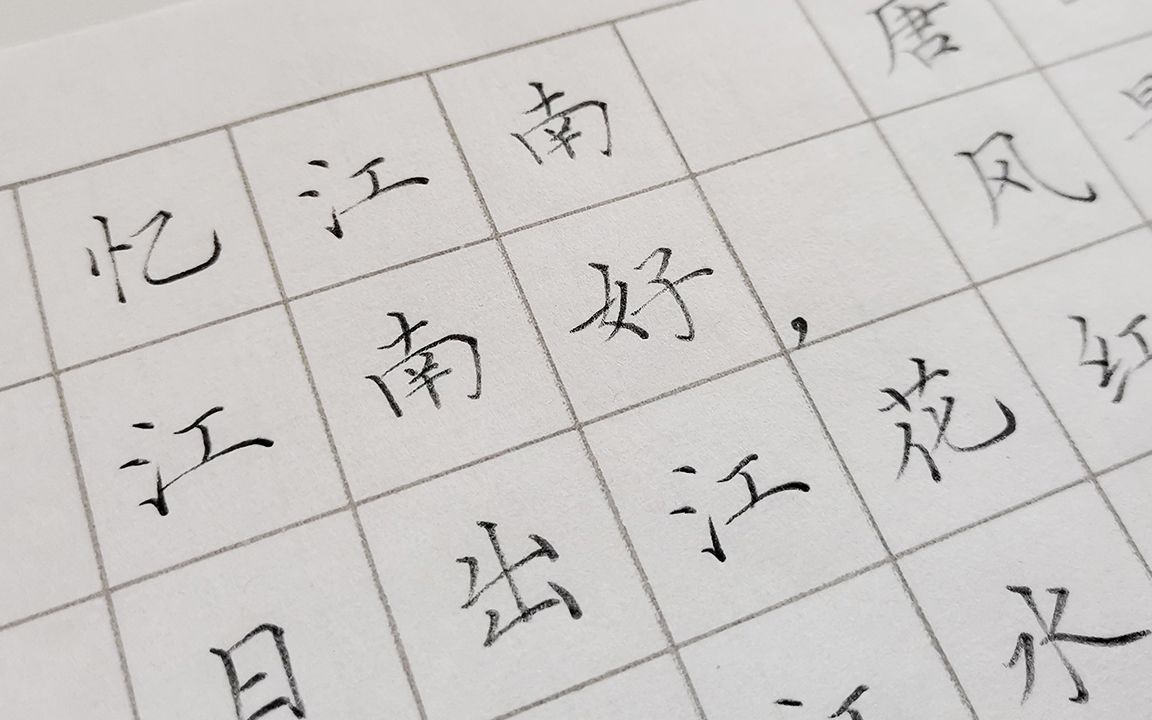 忆江南 唐
江南好，风
日出江花红
江水